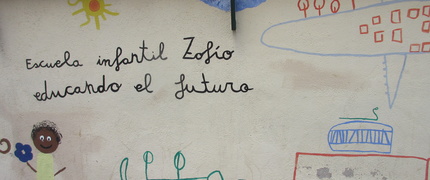 Escuela infantil Zofío
educando el futuro